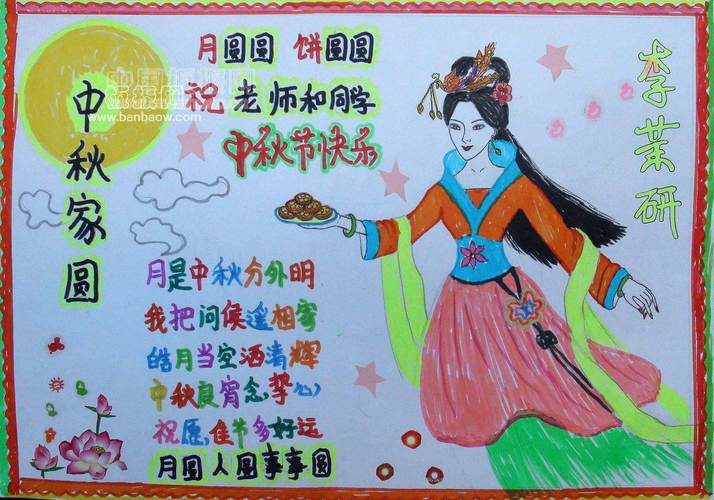 月圆圆 饼圆圆
祝老师和同学
中秋节快乐
中秋家圆
www.banbaow.com
李茉研
月是中秋分外明
我把问候遥相寄
皓月当空洒清辉
中秋良宵念挚心
祝愿佳节多好运
月圆人圆事事圆